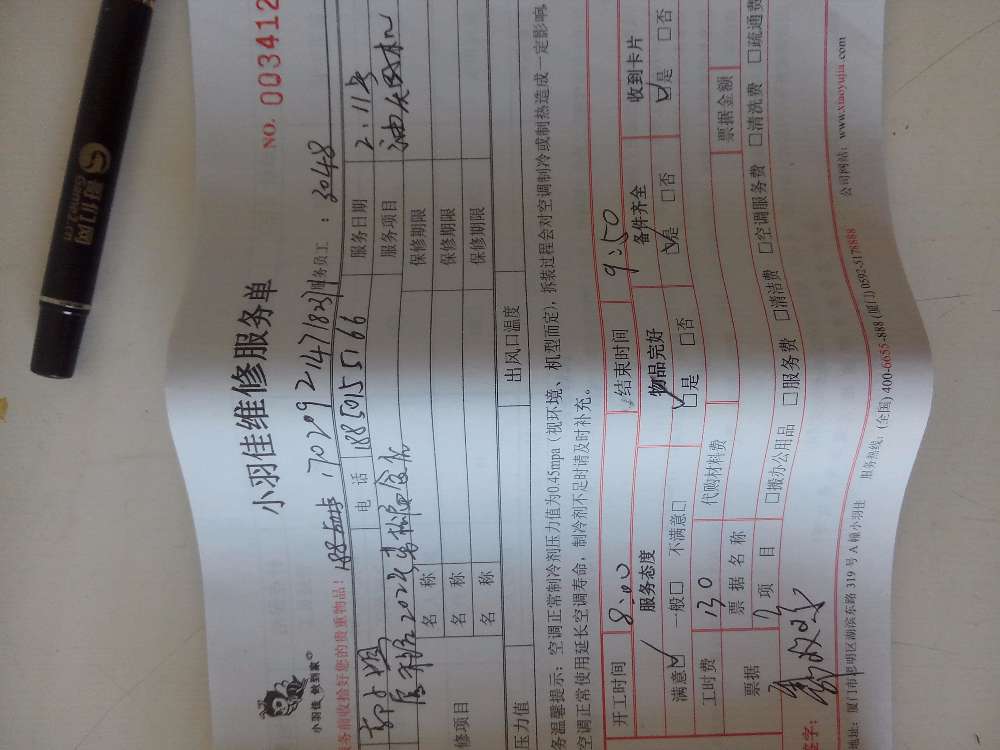 小羽佳维修服务单
NO. 003412
小羽佳 做到家
务前收拾好您的贵重物品!
17029214718
服务员工：3048
电 话 18850155166
服务日期 2.11号
服务项目 油烟风机
名 称
保修期限
名 称
保修期限
名 称
保修期限
修项目
压力值
出风口温度
务温馨提示：空调正常制冷剂压力值为0.45mpa（视环境、机型而定），拆装过程会对空调制冷或制热造成一定影响，
空调正常使用延长空调寿命，制冷剂不足时请及时补充。
开工时间 8:00 结束时间 9:50
服务态度 物品完好 备件齐全 收到卡片
满意☑ 一般□ 不满意□ ☑是 □否 ☑是 □否 ☑是 □否
工时费 130 代购材料费
票据 票据名称 票据金额
项 目 □搬办公用品 □服务费 □清洁费 □空调服务费 □清洗费 □疏通费
签字：
地址：厦门市思明区湖滨东路 319 号 A 幢小羽佳 服务热线：(全国) 400-6655-888 (厦门) 0592-5178888 公司网站：www.xiaoyujia.com
哥们网
Gamme2.cn